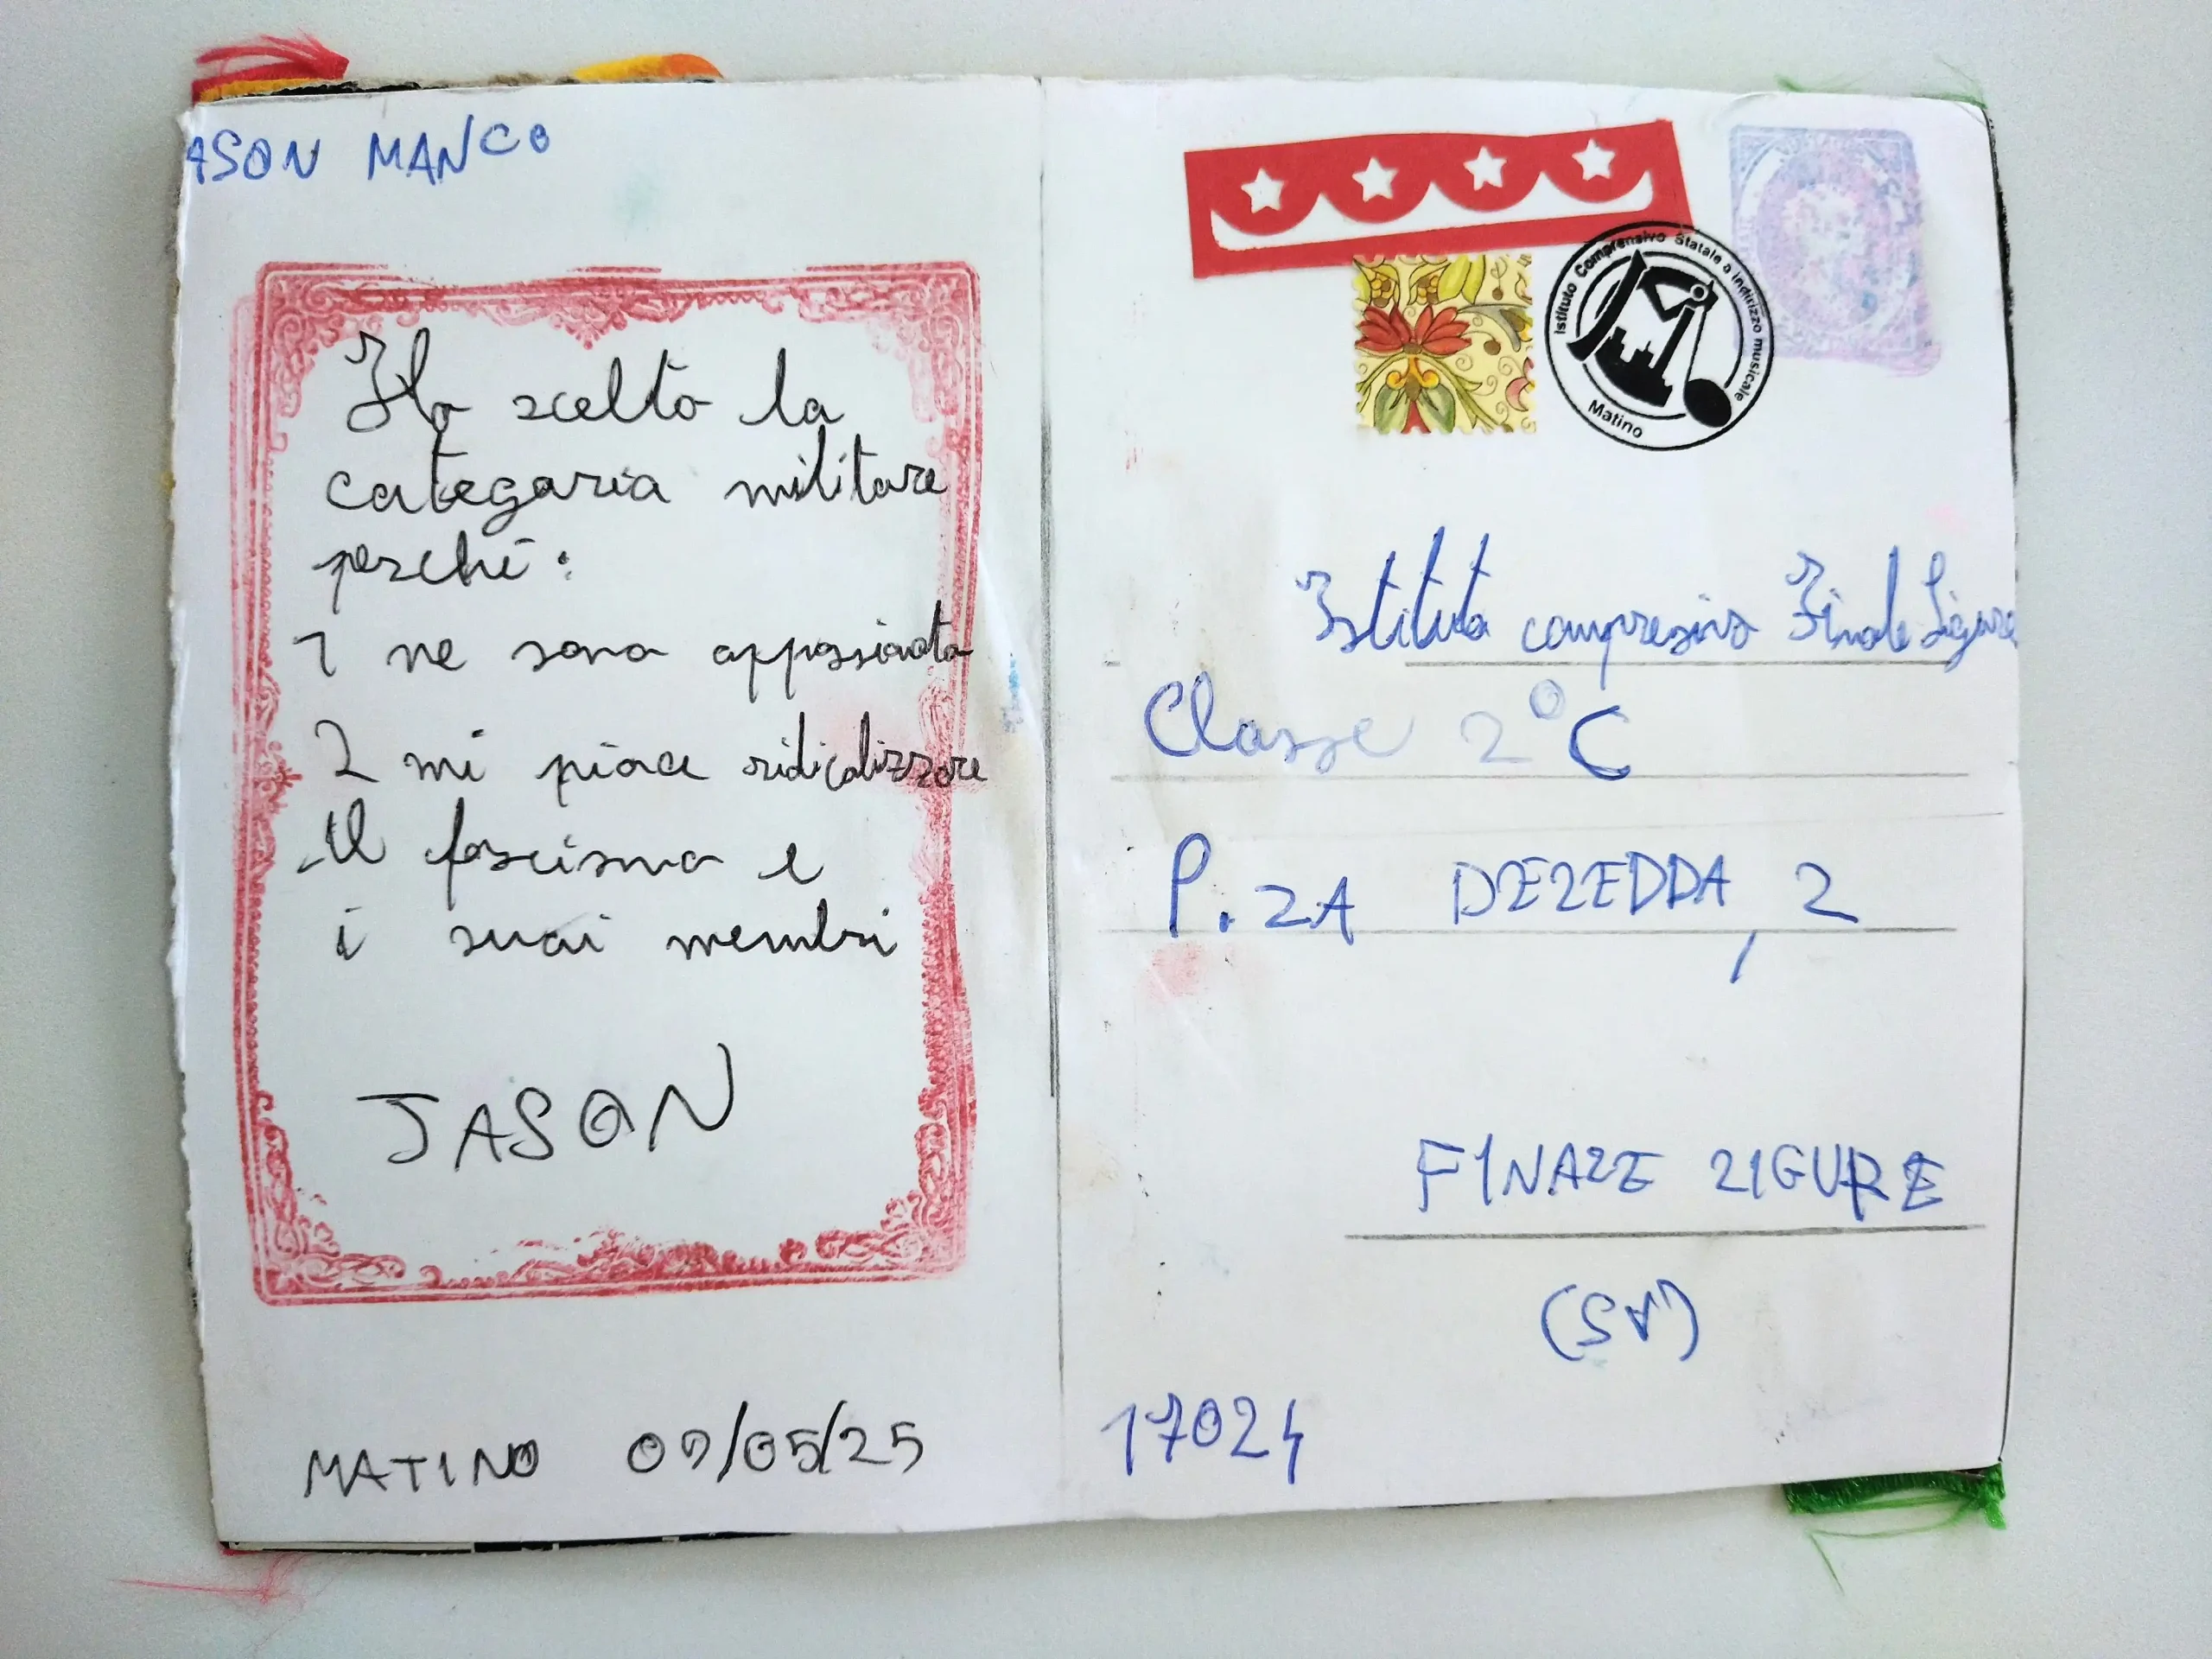 ASON MANCO
Ho scelto la
categoria militare
perché:
1 ne sono appassionato
2 mi piace ridicolizzare
il fascismo e
i suoi membri
JASON
MATINO 09/05/25
Istituto Comprensivo Statale a indirizzo musicale
Matino
Istituto compresivo Finale Ligure
Classe 2°C
P.ZA DELEDDA, 2
FINALE LIGURE
(SV)
17024